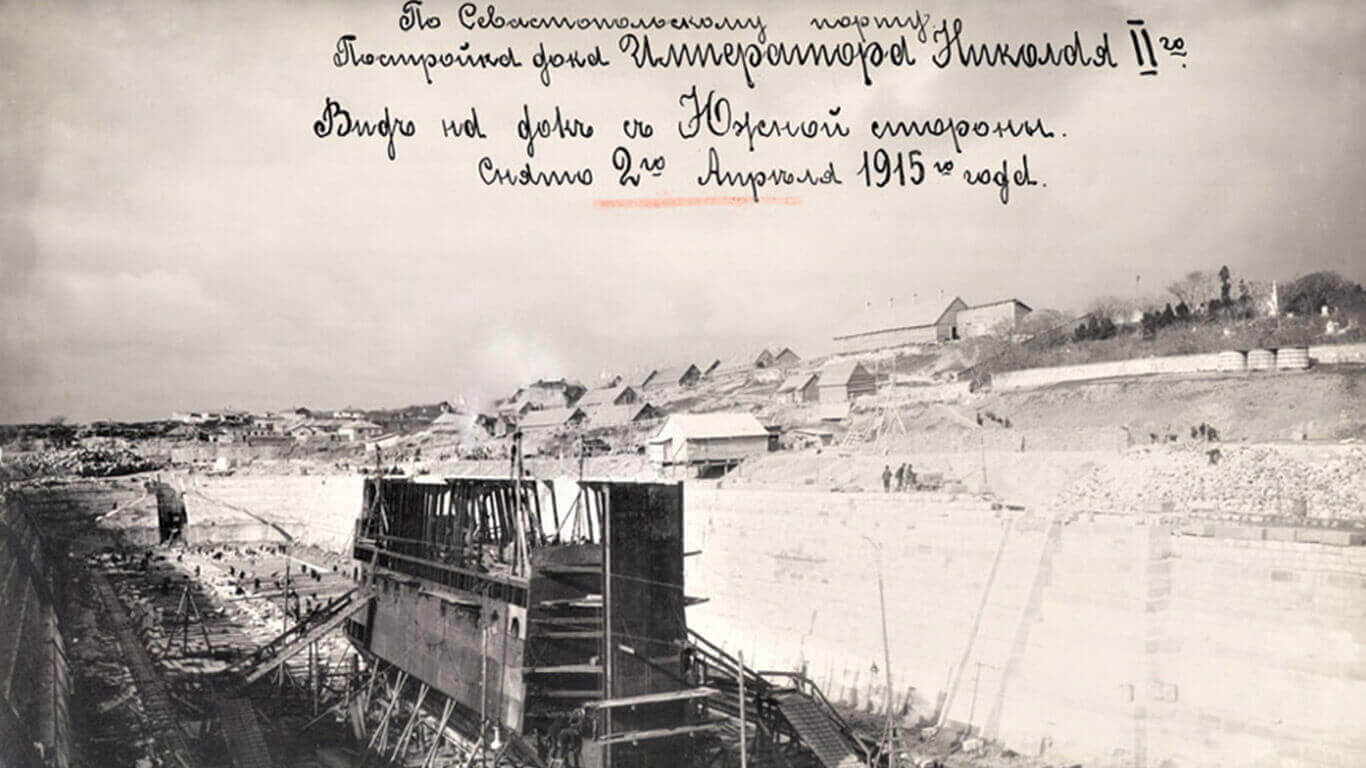 По Севастопольскому порту.
Постройка дока Императора Николая IIго.
Видъ на докъ съ Южной стороны.
Снято 2го Апрѣля 1915го года.